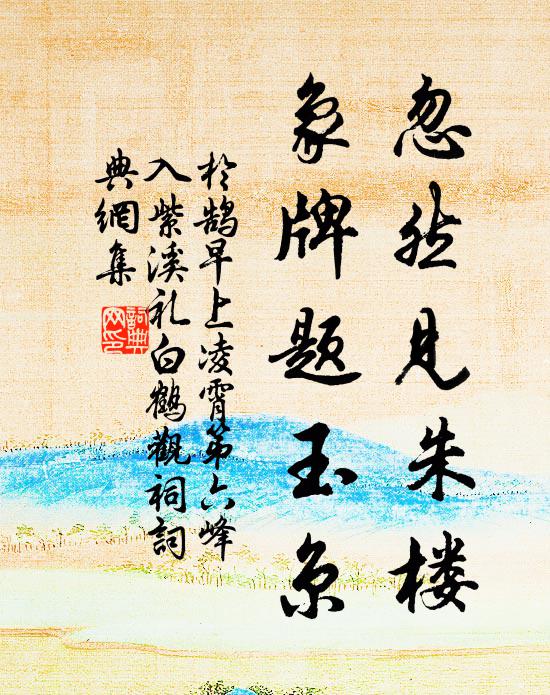 忽然见朱楼
象牌题玉京
於鹄早上凌霄第六峰
入紫溪礼白鹤觀祠詞
典網集
詞典
网印